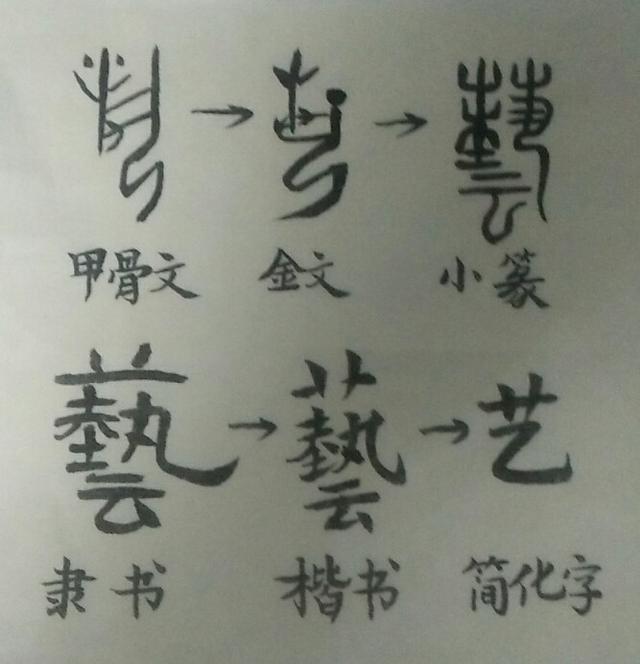 藝 → 藝 → 藝
甲骨文 金文 小篆
藝 → 藝 → 艺
隶书 楷书 简化字